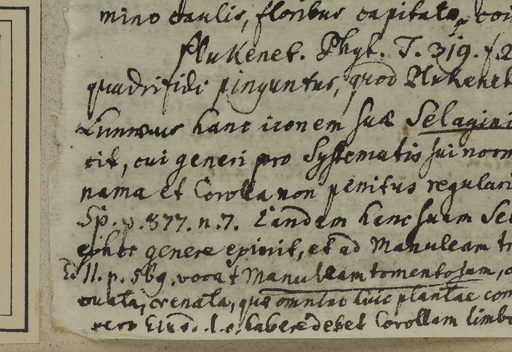 mino caulis, floribus capitatis, coi
Plukenet. Phyt. T. 319. f. 2
quadrifidi pinguntur, quod Plukenet
Linnæus hanc iconem suæ Selagini
cit, cui generi pro Systematis sui norm
nama et Corolla non penitus regulari
Sp. p. 877. n. 7. Eandem hanc suam Sel
ephoc genere epinit, et ad Manuleam tr
Ed. II. p. 569. vocat Manuleam tomentosam,
ovata, crenata, quæ omnino huic plantæ com
vero Ejusd. l. c. habere debet Corollam limbo